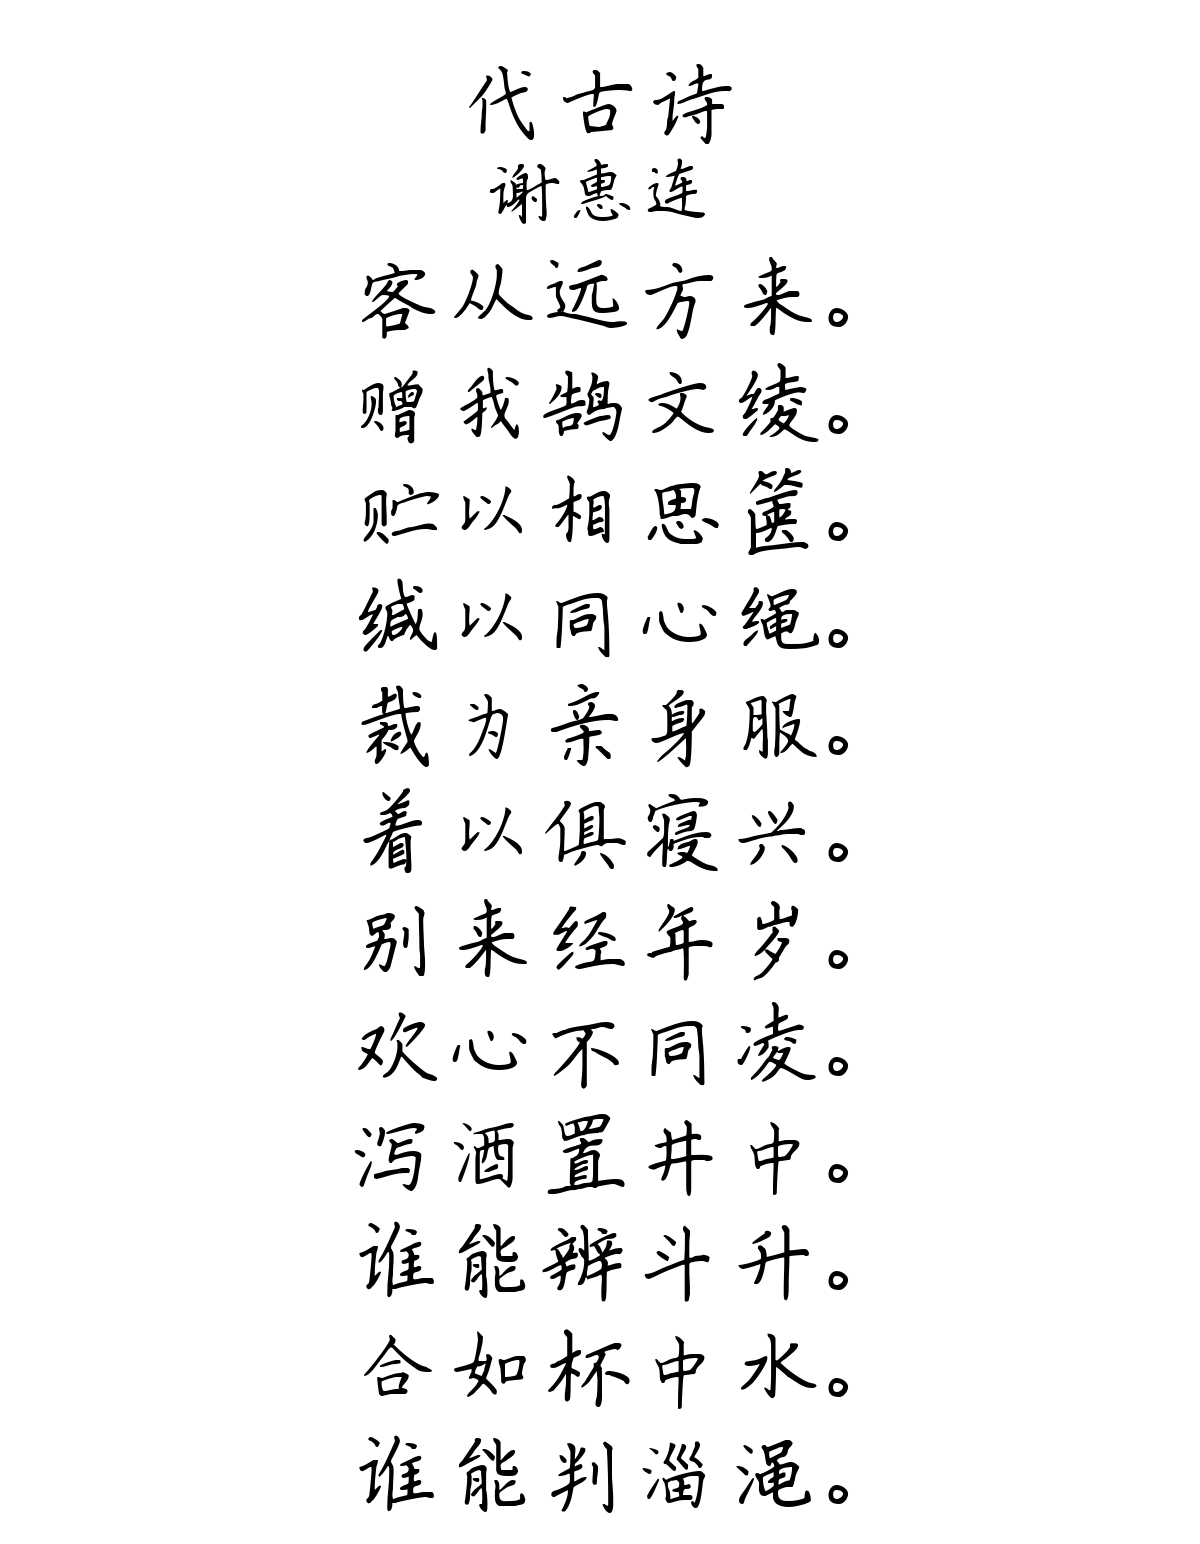 代古诗
谢惠连
客从远方来。
赠我鹄文绫。
贮以相思箧。
缄以同心绳。
裁为亲身服。
着以俱寝兴。
别来经年岁。
欢心不同凌。
泻酒置井中。
谁能辨斗升。
合如杯中水。
谁能判淄渑。